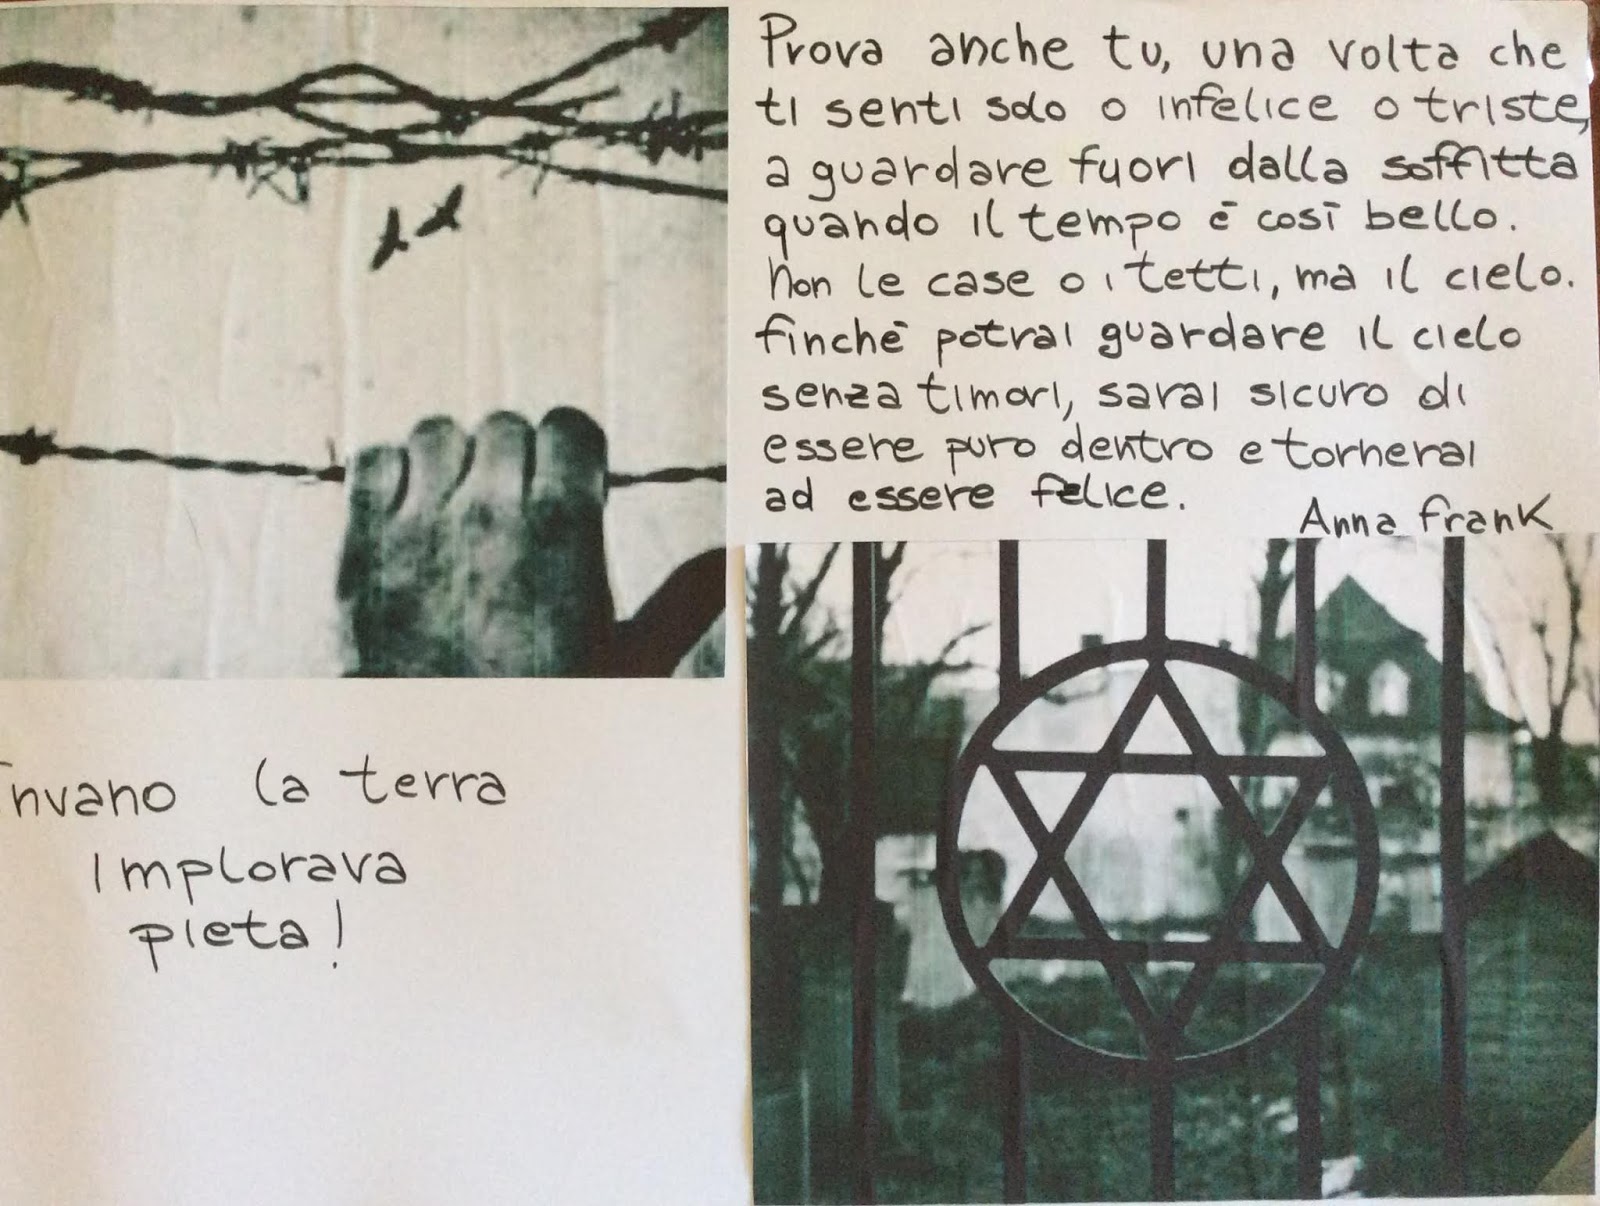 Prova anche tu, una volta che
ti senti solo o infelice o triste,
a guardare fuori dalla soffitta
quando il tempo è così bello.
Non le case o i tetti, ma il cielo.
finchè potrai guardare il cielo
senza timori, sarai sicuro di
essere puro dentro e tornerai
ad essere felice.
Anna frank
Invano la terra
implorava
pieta!